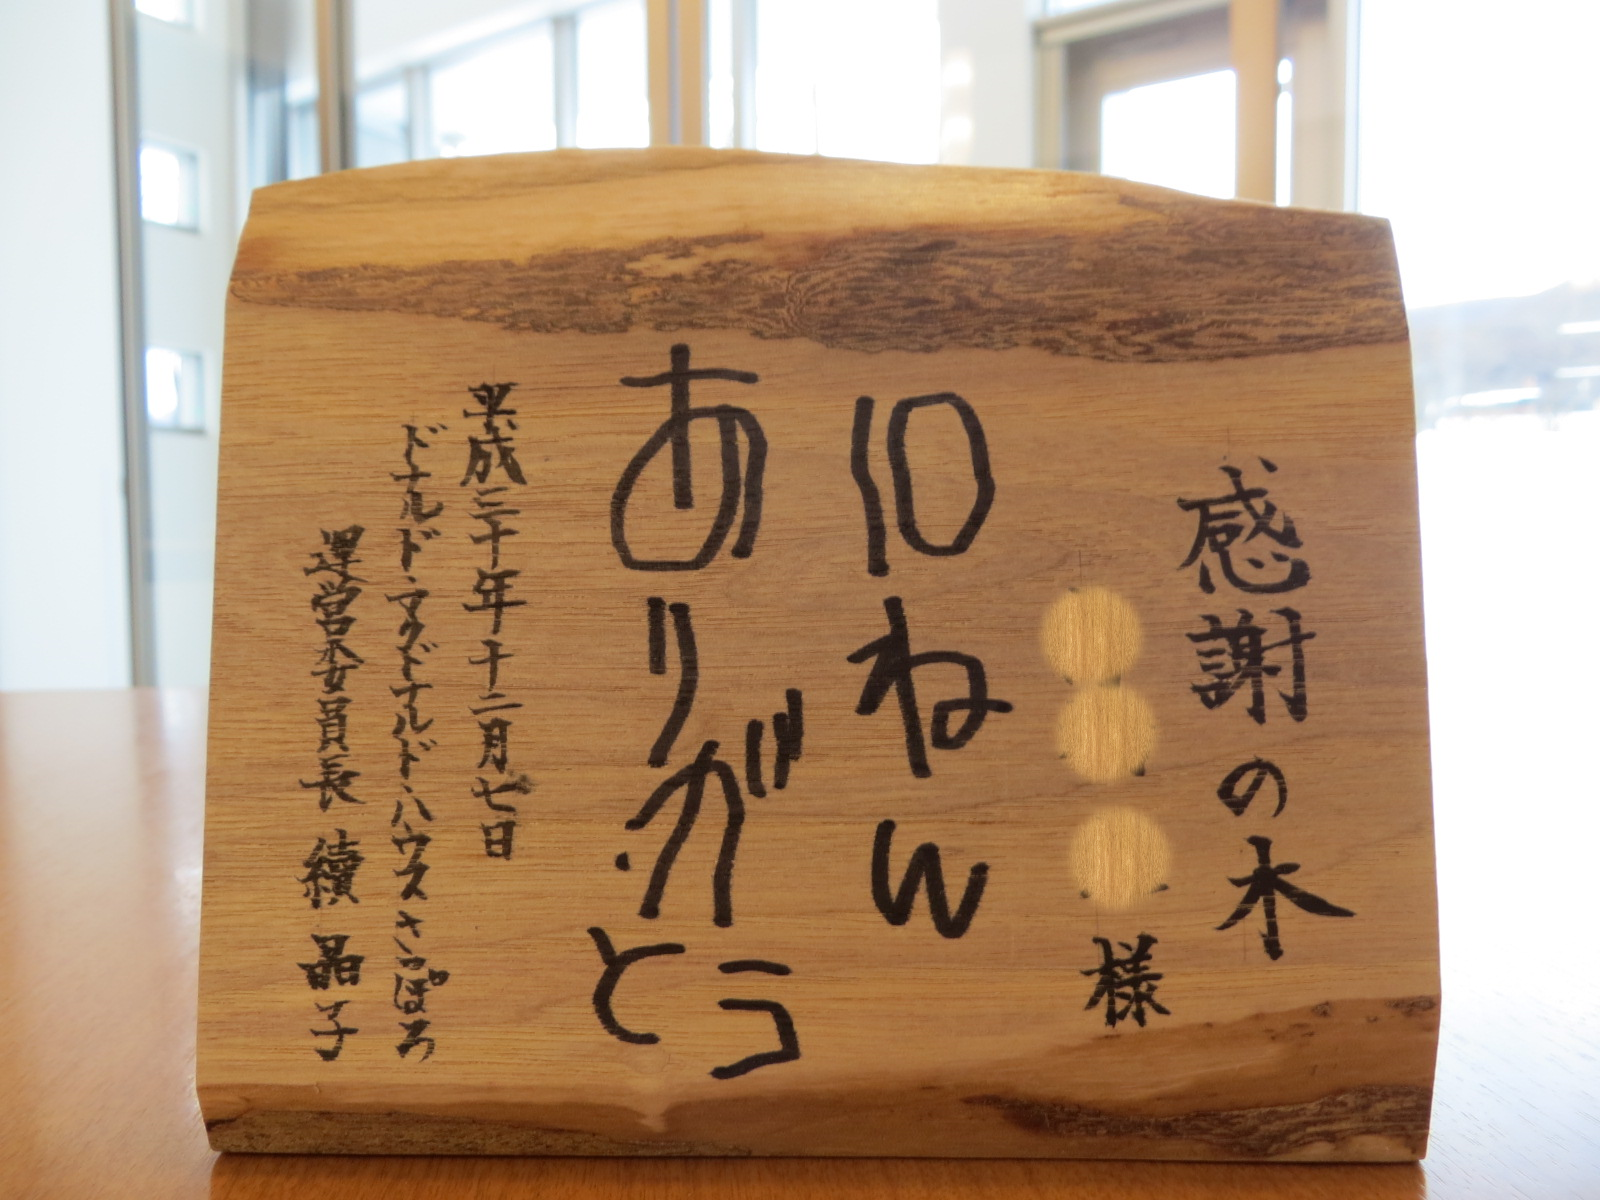 感謝の木
様
10ねん
ありがとう
平成三十年十二月七日
ドナルド・マクドナルド・ハウス さっぽろ
運営委員長 續 晶子